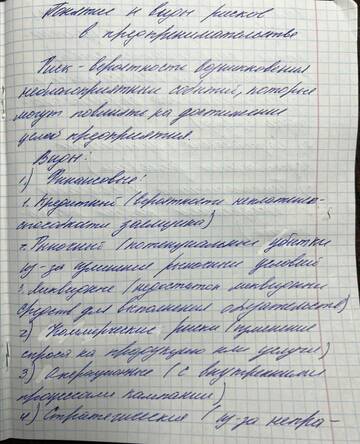 Понятие и виды рисков
в предпринимательстве
Риск - вероятность возникновения
неблагоприятных событий, которые
могут повлиять на достижение
целей предприятия.
Виды:
1.) Финансовые:
1. Кредитный (вероятность неплатёжно-
способности заёмщика)
2. Рыночный (потенциальные убытки
из-за изменения рыночных условий
3. Ликвидные (недостаток ликвидных
средств для выполнения обязательств)
2) Коммерческие риски (изменение
спроса на продукцию или услуги)
3) Операционные (с внутренними
процессами компании)
4) Стратегические (из-за непра-